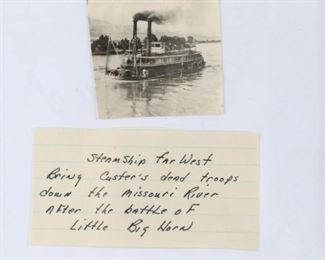 Steamship Far West
Bring Custer's dead troops
down the Missouri River
After the battle of
Little Big Horn